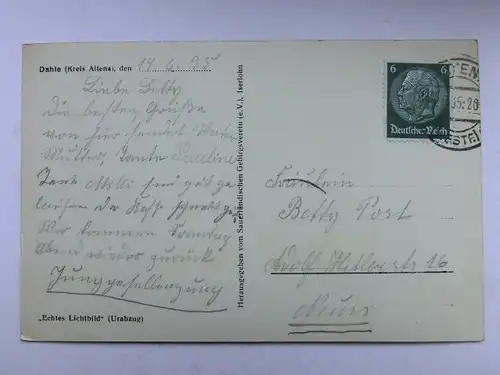 Dahle (Kreis Altena), den 14. 6. 35
Liebe Betty
Die besten Grüße
von hier sendet
Mutter, Tante Pauline
Tante sind gut ge
laufen der
Wir kommen Sonntag
Abend wieder zurück
Junggesellen
„Echtes Lichtbild" (Urabzug)
Herausgegeben vom Sauerländischen Gebirgsverein (e.V.), Iserlohn
6 6
Deutsches Reich
35.20
Fräulein
Betty Post
Adolf Hitlerstr 16
Neuss